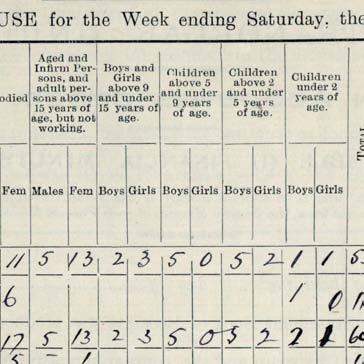 USE for the Week ending Saturday, the
Aged and Infirm Per- Boys and Children Children Children
sons, and Girls above 5 above 2 under 2
adult per- above 9 and under and under years of
odied sons above and under 9 years 5 years age.
15 years of 15 years of of age. of age.
age, but not age.
working.
Fem Males Fem Boys Girls Boys Girls Boys Girls Boys Girls
11 5 13 2 3 5 0 5 2 1 1
6 1 0
17 5 13 2 3 5 0 5 2 2 1